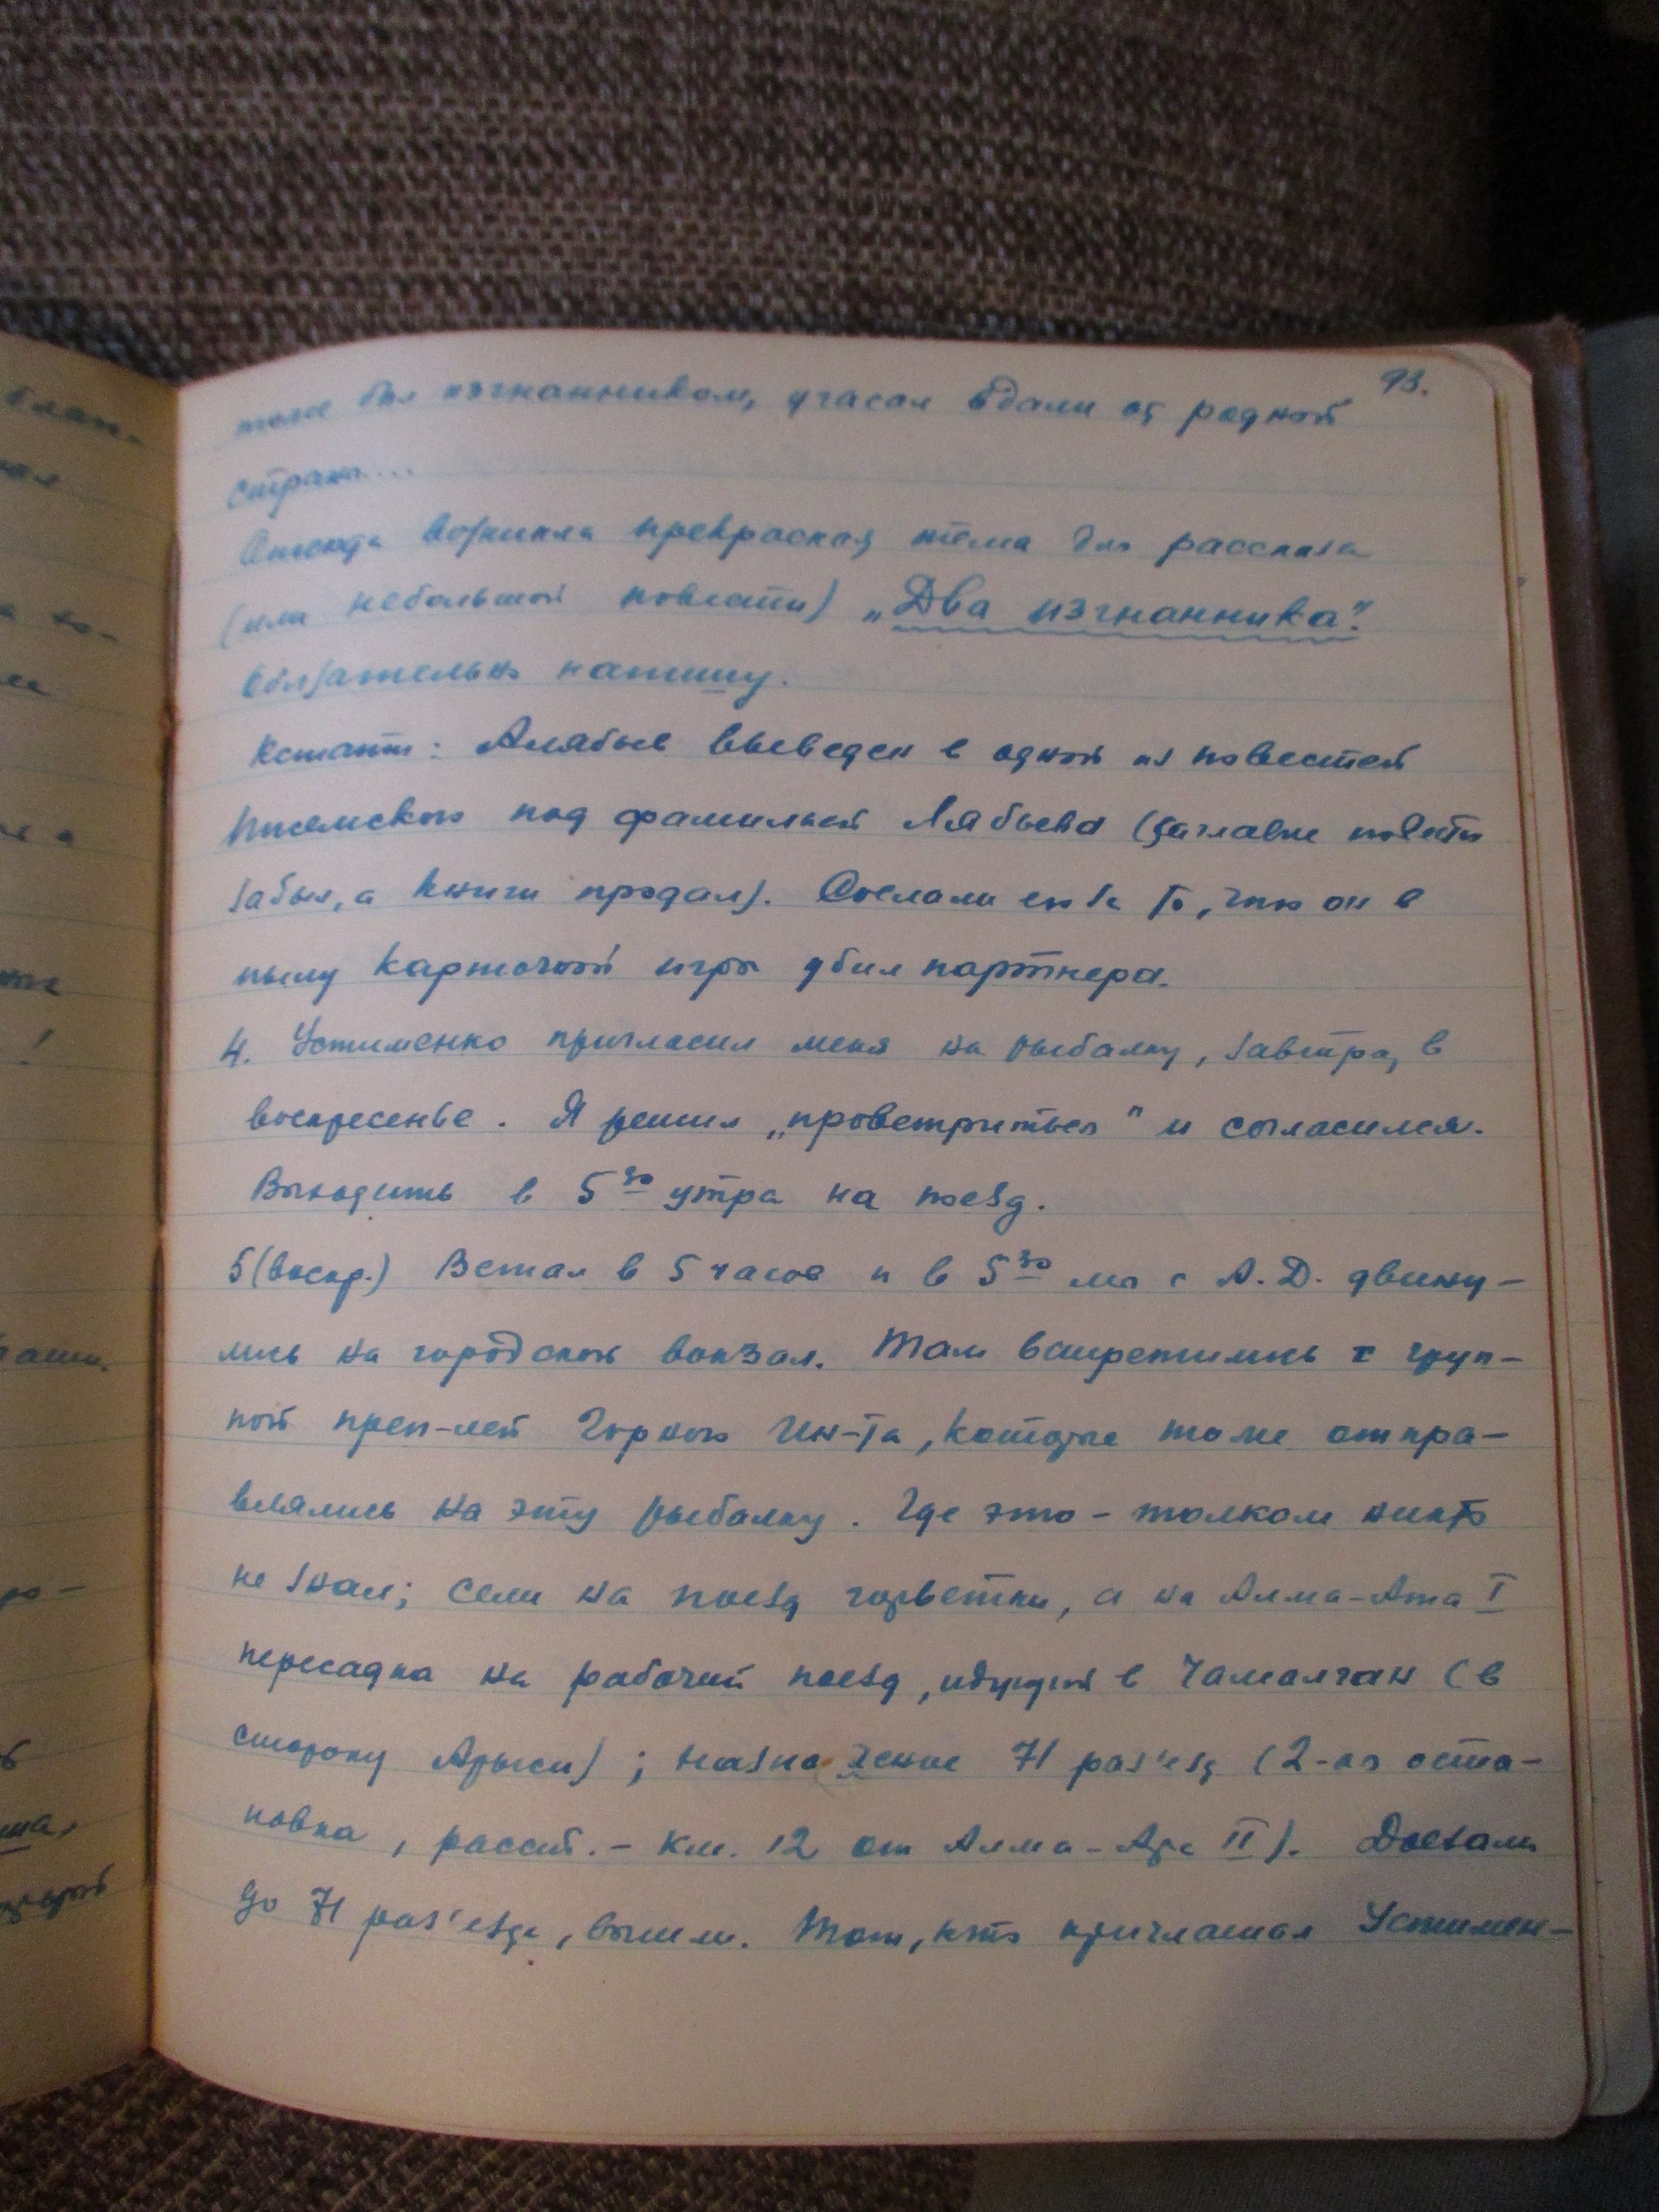 93.
тоже был изгнанником, угасал вдали от родной
страны...
Отсюда возникла прекрасная тема для рассказа
(или небольшой повести) „Два изгнанника".
Обязательно напишу.
Кстати: Алябьев выведен в одной из повестей
Писемского под фамилией Лябьева (заглавие повести
забыл, а книги продал). Сослали его за то, что он в
пылу карточной игры убил партнера.
4. Устименко пригласил меня на рыбалку, завтра, в
воскресенье. Я решил „проветриться" и согласился.
Выходить в 5 30 утра на поезд.
5 (воскр.) Встал в 5 часов и в 5 30 мы с А.Д. двину-
лись на городской вокзал. Там встретились с груп-
пой преп-лей Горного Ин-та, которые тоже отпра-
влялись на эту рыбалку. Где это - толком никто
не знал; сели на поезд горветки, а на Алма-Ата I
пересадка на рабочий поезд, идущий в Чамалган (в
сторону Арыси); назначение 71 раз'езд (2-ая оста-
новка, расст. - км. 12 от Алма-Аты II). Доехали
до 71 раз'езда, вышли. Тот, кто приглашал Устимен-